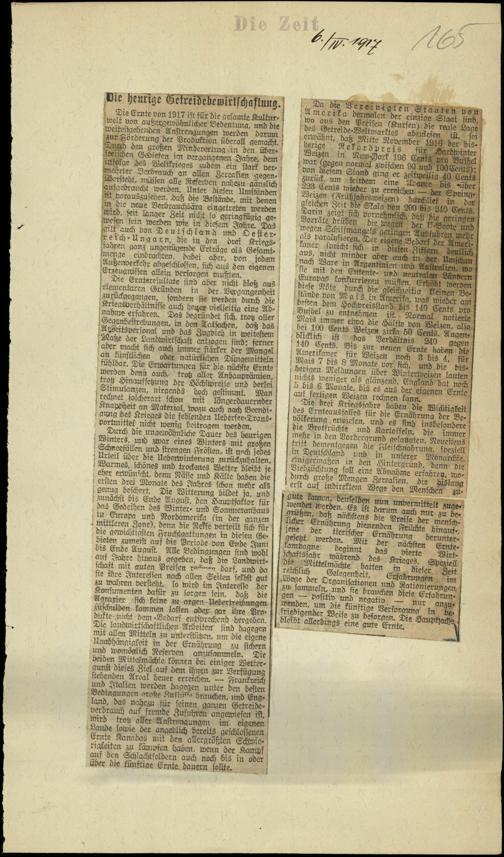 Die Zeit
6./IV. 1917
165
Die heurige Getreidebewirtschaftung.
Die Ernte von 1917 ist für die gesamte Kultur-
welt von außergewöhnlicher Bedeutung, und die
weitestgehenden Anstrengungen werden darum
zur Förderung der Produktion überall gemacht.
Durch den großen Minderertrag in den über-
seeischen Gebieten im vergangenen Jahre, dem
zufolge des Weltkrieges zudem ein stark ver-
mehrter Verbrauch an allen Zerealien gegen-
übersteht, müssen alle Reserven nahezu gänzlich
aufgebraucht werden. Unter diesen Umständen
ist vorauszusehen, daß die Bestände, mit denen
in die neue Verbrauchsära eingetreten werden
wird, seit langer Zeit nicht so geringfügig ge-
wesen sein werden wie in diesem Jahre. Das
gilt auch von Deutschland und Oester-
reich-Ungarn, die in den drei Kriegs-
jahren ganz ungenügende Erträge als Gesamt-
menge einbrachten, dabei aber, von jedem
Außenverkehr abgeschlossen, sich aus den eigenen
Erzeugnissen allein versorgen mußten.
Die Ernteresultate sind aber nicht bloß aus
elementaren Gründen in der Vergangenheit
zurückgegangen, sondern sie werden durch die
Kriegsverhältnisse auch heuer vielseitig eine Ab-
nahme erfahren. Das begründet sich, trotz aller
Gegenbestrebungen, in den Tatsachen, daß das
Arbeitspersonal und das Zugvieh in weitestem
Maße der Landwirtschaft entzogen sind; ferner
aber macht sich auch immer stärker der Mangel
an künstlichen oder natürlichen Düngemitteln
fühlbar. Die Erwartungen für die nächste Ernte
werden denn auch, trotz aller Anbauprämien,
trotz Hinaufsetzung der Höchstpreise und derlei
Stimulanzen, nirgends hoch gestimmt. Man
rechnet solcherart schon mit längerdauernder
Knappheit an Material, wozu auch nach Beendi-
gung des Krieges die fehlenden Uebersee-Trans-
portmittel nicht wenig beitragen werden.
Durch die ungewöhnliche Dauer des heurigen
Winters, und zwar eines Winters mit großen
Schneefällen und strengen Frösten, ist noch jedes
Urteil über die Ueberwinterung zurückzuhalten.
Warmes, schönes und trockenes Wetter bleibt je
eher erwünscht, denn Nässe und Kälte haben die
ersten drei Monate des Jahres schon mehr als
genug beschert. Die Witterung bildet ja, und
zunächst bis Ende August, den Hauptfaktor für
das Gedeihen des Winter- und Sommeranbaus
in Europa und Nordamerika (in der ganzen
mittleren Zone), denn die Reife verteilt sich für
die gewichtigsten Fruchtgattungen in diesen Ge-
bieten zumeist auf die Periode von Ende Juni
bis Ende August. Alle Bedingungen sind wohl
auf Jahre hinaus gegeben, daß die Landwirt-
schaft mit guten Preisen rechnen darf, und da
sie ihre Interessen nach allen Seiten selbst gut
zu wahren versteht, so wird im Interesse der
Konsumenten dafür zu sorgen sein, daß die
Agrarier sich keine zu argen Uebertreibungen
zuschulden kommen lassen oder gar ihre Pro-
dukte nicht dem Bedarf entsprechend hergeben.
Die landwirtschaftlichen Arbeiten sind dagegen
mit allen Mitteln zu unterstützen, um die eigene
Unabhängigkeit in der Ernährung zu sichern
und womöglich Reserven anzusammeln. Die
beiden Mittelmächte können bei einiger Wetter-
gunst dieses Ziel auf dem ihnen zur Verfügung
stehenden Areal heuer erreichen. — Frankreich
und Italien werden dagegen unter den besten
Bedingungen große Zufuhren brauchen, und Eng-
land, das nahezu für seinen ganzen Getreide-
verbrauch auf fremde Zufuhren angewiesen ist,
wird trotz aller Anstrengungen im eigenen
Lande sowie der angeblich bereits geschlossenen
Ernte Kanadas mit den allergrößten Schwie-
rigkeiten zu kämpfen haben, wenn der Kampf
auf den Schlachtfeldern auch noch bis in oder
über die fünftige Ernte dauern sollte.
Da die Vereinigten Staaten von
Amerika dermalen der einzige Staat sind,
wo aus den Preisen (Kursen) die reale Lage
des Getreide-Weltmarktes abzulesen ist, sei
erwähnt, daß Mitte November 1916 der bis-
herige Rekordpreis für Hardwinter
Weizen in New-York 196 Cents pro Bushel
war (gegen normal zwischen 90 und 100 Cents);
von diesem Stand ging er zeitweilig 40 Cents
zurück, um seitdem eine Avance bis über
223 Cents wieder zu erreichen — der Spring-
Weizen (Neuladungen) durchlief in der
gleichen Zeit die Skala von 200 bis 240 Cents.
Darin zeigt sich vornehmlich, daß die geringen
Vorräte drücken, die wegen der U-Boote und
wegen Schiffmangels geltigen Ausfuhren mehr
als paralysieren. Der eigene Bedarf der Ameri-
kaner spricht sich in diesen Ziffern deutlich
aus, nicht minder aber auch in der Umschau
nach Ware in Argentinien und Australien, wo
sie mit den Entente- und neutralen Ländern
Europas konkurrieren mußten. Erhöht werden
diese Nöte durch die gleichzeitig kleiner Be-
stände von Mais in Amerika, was wieder am
besten den Höchstpreisstand bis 140 Cents pro
Bushel zu entnehmen ist. Normal notierte
Mais immer etwa die Hälfte von Weizen, also
bei 100 Cents Weizen zirka 50 Cents. Augen-
blicklich ist das Verhältnis 240 gegen
140 Cents. Bis zur neuen Ernte haben die
Amerikaner für Weizen noch 3 bis 4, für
Mais 7 bis 8 Monate vor sich, und die bis-
herigen Meldungen über Winterweizen lauten
nichts weniger als glänzend. England hat noch
5 bis 6 Monate, bis es aus der eigenen Ernte
auf fertigen Weizen rechnen kann.
Die drei Kriegsjahre haben die Wichtigkeit
des Ernteausfalles für die Ernährung der Be-
völkerung erwiesen, und es sind insbesondere
die Brotfrüchte und Kartoffeln, die immer
mehr in den Vordergrund gelangten. Neuestens
tritt demgegenüber die Fleischnahrung, speziell
in Deutschland und in unserer Monarchie,
einigermaßen in den Hintergrund, denn die
Viehzüchtung soll eine Abnahme erfahren, wo-
durch große Mengen Zerealien, die bislang
erst auf indirektem Wege den Menschen zu-
gute kamen, denselben nun unvermittelt zuge-
wendet werden. Es ist darum auch nur zu be-
grüßen, daß nächstens die Preise der mensch-
licher Ernährung dienenden Früchte hinauf-,
jene der tierischer Ernährung herunter-
gesetzt werden. Mit der nächsten Ernte-
kampagne beginnt das vierte Wirt-
schaftsjahr während des Krieges. Speziell
die Mittelmächte hatten in dieser Zeit
reichlich Gelegenheit, Erfahrungen im
Wege der Organisationen und Rationierungen
zu sammeln, und sie brauchen diese Erfahrun-
gen — positiv und negativ — nur anzu-
wenden, um die künftige Versorgung in be-
friedigender Weise zu besorgen. Die Hauptsache
bleibt allerdings eine gute Ernte.